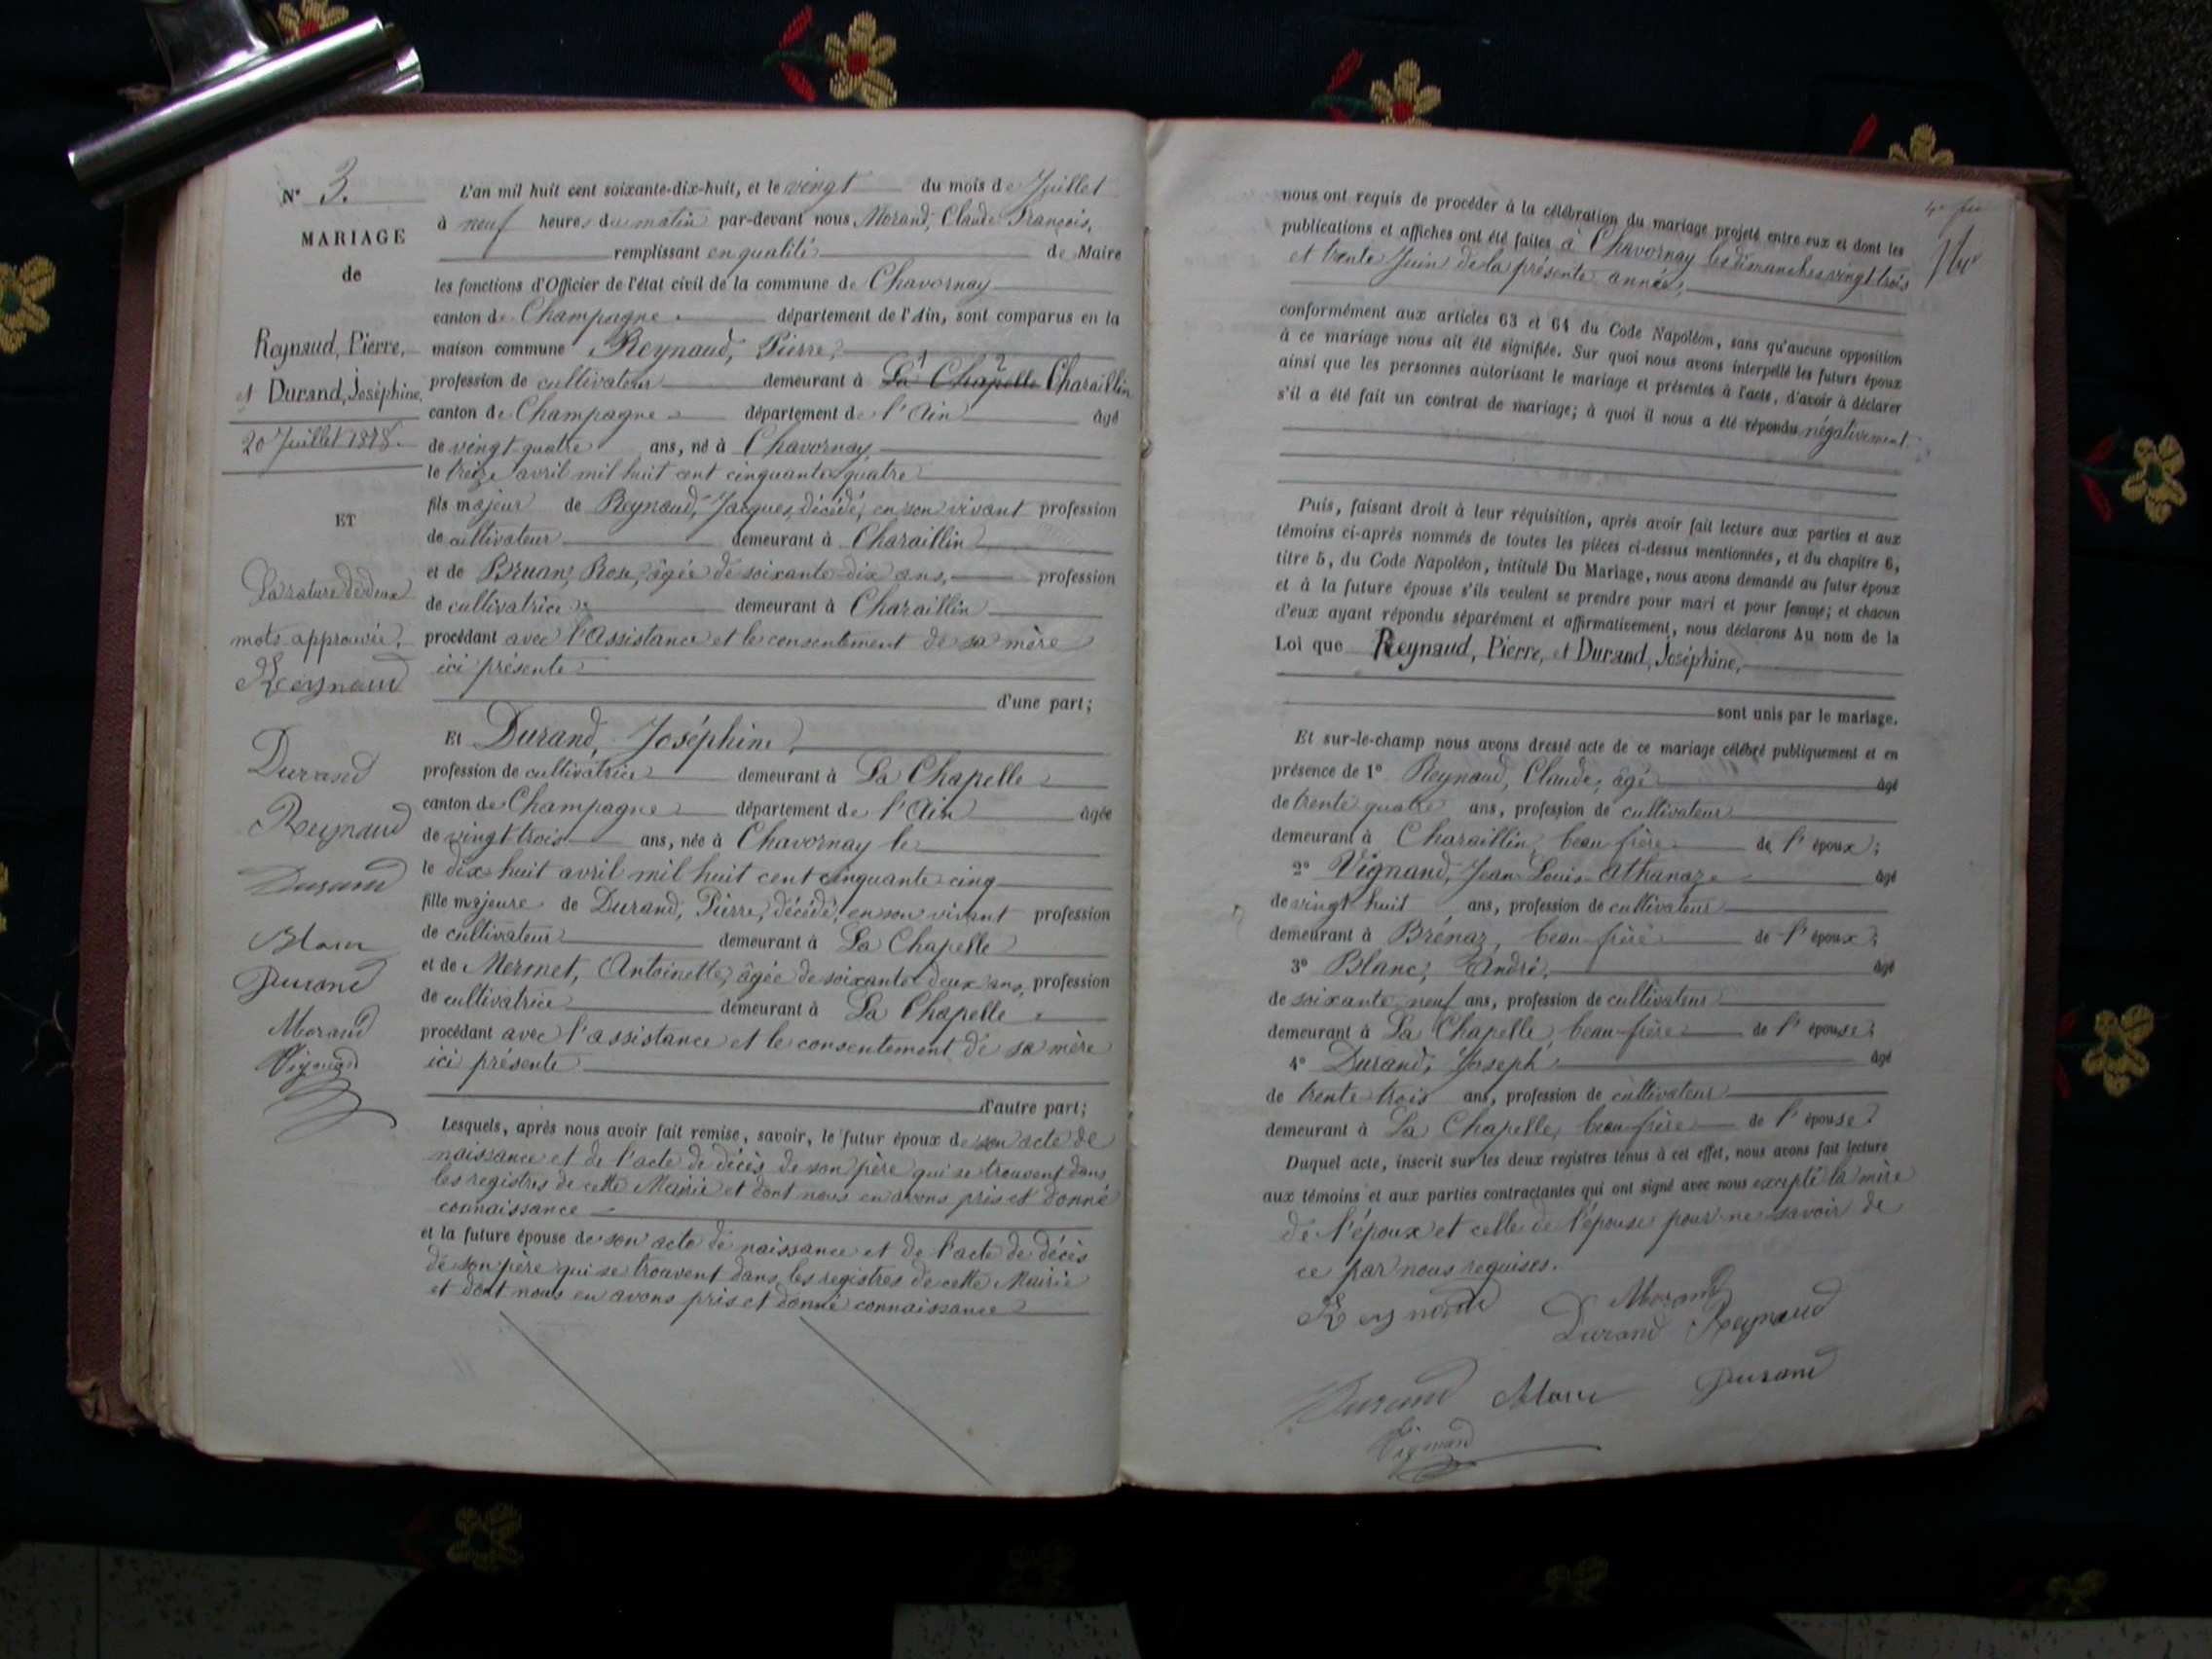 N° 3.
MARIAGE
de
Reynaud, Pierre,
et Durand, Joséphine,
20 Juillet 1878.
ET
La rature de deux
mots approuvée.
Reynaud
Durand
Reynaud
Durand
Blanc
Durand
Morand
Vignand
L'an mil huit cent soixante-dix-huit, et le vingt du mois de Juillet
à neuf heures du matin par-devant nous Morand, Claude François,
remplissant en qualité de Maire
les fonctions d'Officier de l'état civil de la commune de Chavornay
canton de Champagne département de l'Ain, sont comparus en la
maison commune Reynaud, Pierre,
profession de cultivateur demeurant à La 1 Chapelle 2 Charaillin
canton de Champagne département de l'Ain âgé
de vingt-quatre ans, né à Chavornay
le treize avril mil huit cent cinquante quatre
fils majeur de Reynaud, Jacques, décédé, en son vivant profession
de cultivateur demeurant à Charaillin
et de Bruan, Rose, âgée de soixante-dix ans, profession
de cultivatrice demeurant à Charaillin
procédant avec l'Assistance et le consentement de sa mère
ici présente
d'une part;
Et Durand, Joséphine,
profession de cultivatrice demeurant à La Chapelle
canton de Champagne département de l'Ain âgée
de vingt-trois ans, née à Chavornay le
le dix huit avril mil huit cent cinquante cinq
fille majeure de Durand, Pierre, décédé, en son vivant profession
de cultivateur demeurant à La Chapelle
et de Mermet, Antoinette, âgée de soixante deux ans, profession
de cultivatrice demeurant à La Chapelle
procédant avec l'assistance et le consentement de sa mère
ici présente
d'autre part;
Lesquels, après nous avoir fait remise, savoir, le futur époux de son acte de
naissance et de l'acte de décès de son père qui se trouvent dans
les registres de cette Mairie et dont nous en avons pris et donné
connaissance
et la future épouse de son acte de naissance et de l'acte de décès
de son père qui se trouvent dans les registres de cette Mairie
et dont nous en avons pris et donné connaissance
nous ont requis de procéder à la célébration du mariage projeté entre eux et dont les
publications et affiches ont été faites à Chavornay les dimanches vingt trois
et trente Juin de la présente année,
conformément aux articles 63 et 64 du Code Napoléon, sans qu'aucune opposition
à ce mariage nous ait été signifiée. Sur quoi nous avons interpellé les futurs époux
ainsi que les personnes autorisant le mariage et présentes à l'acte, d'avoir à déclarer
s'il a été fait un contrat de mariage; à quoi il nous a été répondu négativement
Puis, faisant droit à leur réquisition, après avoir fait lecture aux parties et aux
témoins ci-après nommés de toutes les pièces ci-dessus mentionnées, et du chapitre 6,
titre 5, du Code Napoléon, intitulé Du Mariage, nous avons demandé au futur époux
et à la future épouse s'ils veulent se prendre pour mari et pour femme; et chacun
d'eux ayant répondu séparément et affirmativement, nous déclarons Au nom de la
Loi que Reynaud, Pierre, et Durand, Joséphine,
sont unis par le mariage.
Et sur-le-champ nous avons dressé acte de ce mariage célébré publiquement et en
présence de 1° Reynaud, Claude, âgé âgé
de trente quatre ans, profession de cultivateur
demeurant à Charaillin, beau-frère de l'époux;
2° Vignand, Jean Louis Athanaze âgé
de vingt huit ans, profession de cultivateur
demeurant à Brénaz, beau-frère de l'époux;
3° Blanc, André, âgé
de soixante neuf ans, profession de cultivateur
demeurant à La Chapelle, beau-frère de l'épouse;
4° Durand, Joseph âgé
de trente trois ans, profession de cultivateur
demeurant à La Chapelle, beau-frère de l'épouse.
Duquel acte, inscrit sur les deux registres tenus à cet effet, nous avons fait lecture
aux témoins et aux parties contractantes qui ont signé avec nous excepté la mère
de l'époux et celle de l'épouse pour ne savoir de
ce par nous requises.
Reynaud Morand
Durand Reynaud
Durand Blanc Durand
Vignand